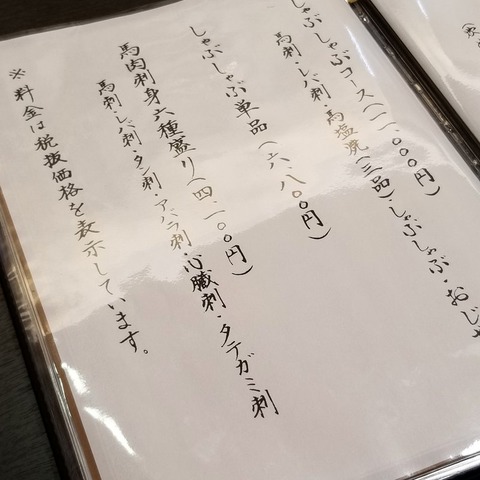 しゃぶしゃぶコース(一一、〇〇〇円)
馬刺・レバ刺・馬塩焼(三品)・しゃぶしゃぶ・おじや
しゃぶしゃぶ単品(六、八〇〇円)
馬肉刺身六種盛り(四、一〇〇円)
馬刺・レバ刺・タン刺・アバラ刺・心臓刺・タテガミ刺
※料金は税抜価格を表示しています。